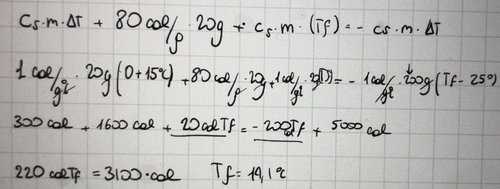 Cs.m.ΔT + 80 cal/g · 20g + Cs.m.(Tf) = - cs.m.ΔT
1 cal/g°C · 20g (0+15°C) + 80 cal/g · 20g + 1 cal/g°C · 20g(Tf) = - 1 cal/g°C · 200g (Tf - 25°)
300 cal + 1600 cal + 20 cal Tf = - 200 cal Tf + 5000 cal
220 cal Tf = 3100 · cal Tf = 14,1°C